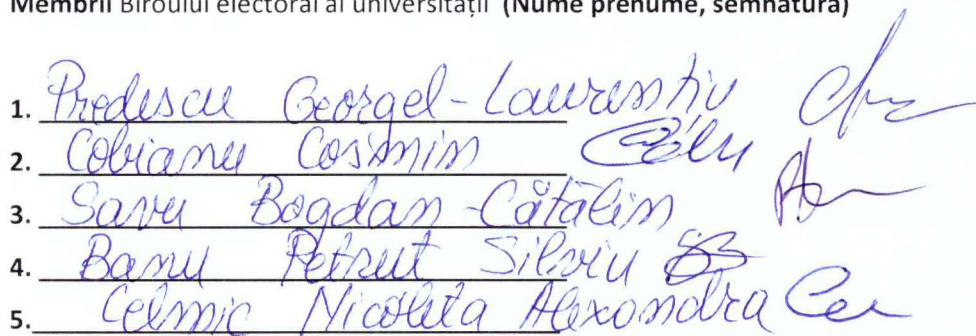 Membrii Biroului electoral al universității (Nume prenume, semnătura)
1. Predescu Georgel-Laurențiu
2. Cobianu Cosmin
3. Savu Bogdan-Cătălin
4. Banu Petrut Silviu
5. Celmic Nicoleta Alexandra